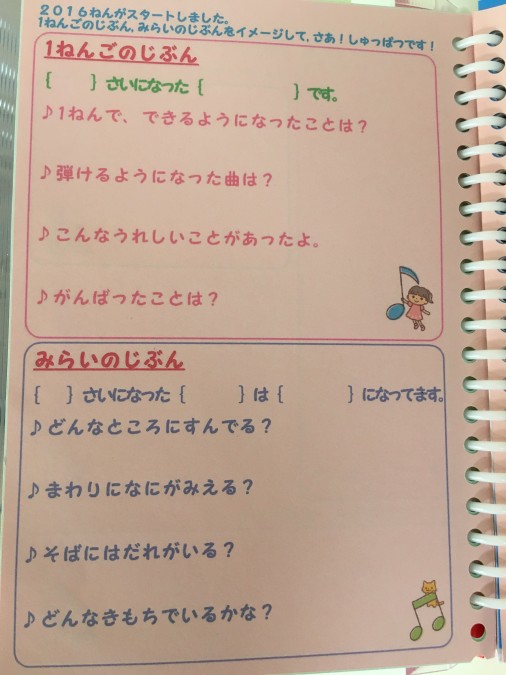 ２０１６ねんがスタートしました。
１ねんごのじぶん，みらいのじぶんをイメージして，さあ！しゅっぱつです！
１ねんごのじぶん
{　　} さいになった {　　　　　} です。
♪１ねんで、できるようになったことは？
♪弾けるようになった曲は？
♪こんなうれしいことがあったよ。
♪がんばったことは？
みらいのじぶん
{　　} さいになった {　　　} は {　　　　} になってます。
♪どんなところにすんでる？
♪まわりになにがみえる？
♪そばにはだれがいる？
♪どんなきもちでいるかな？